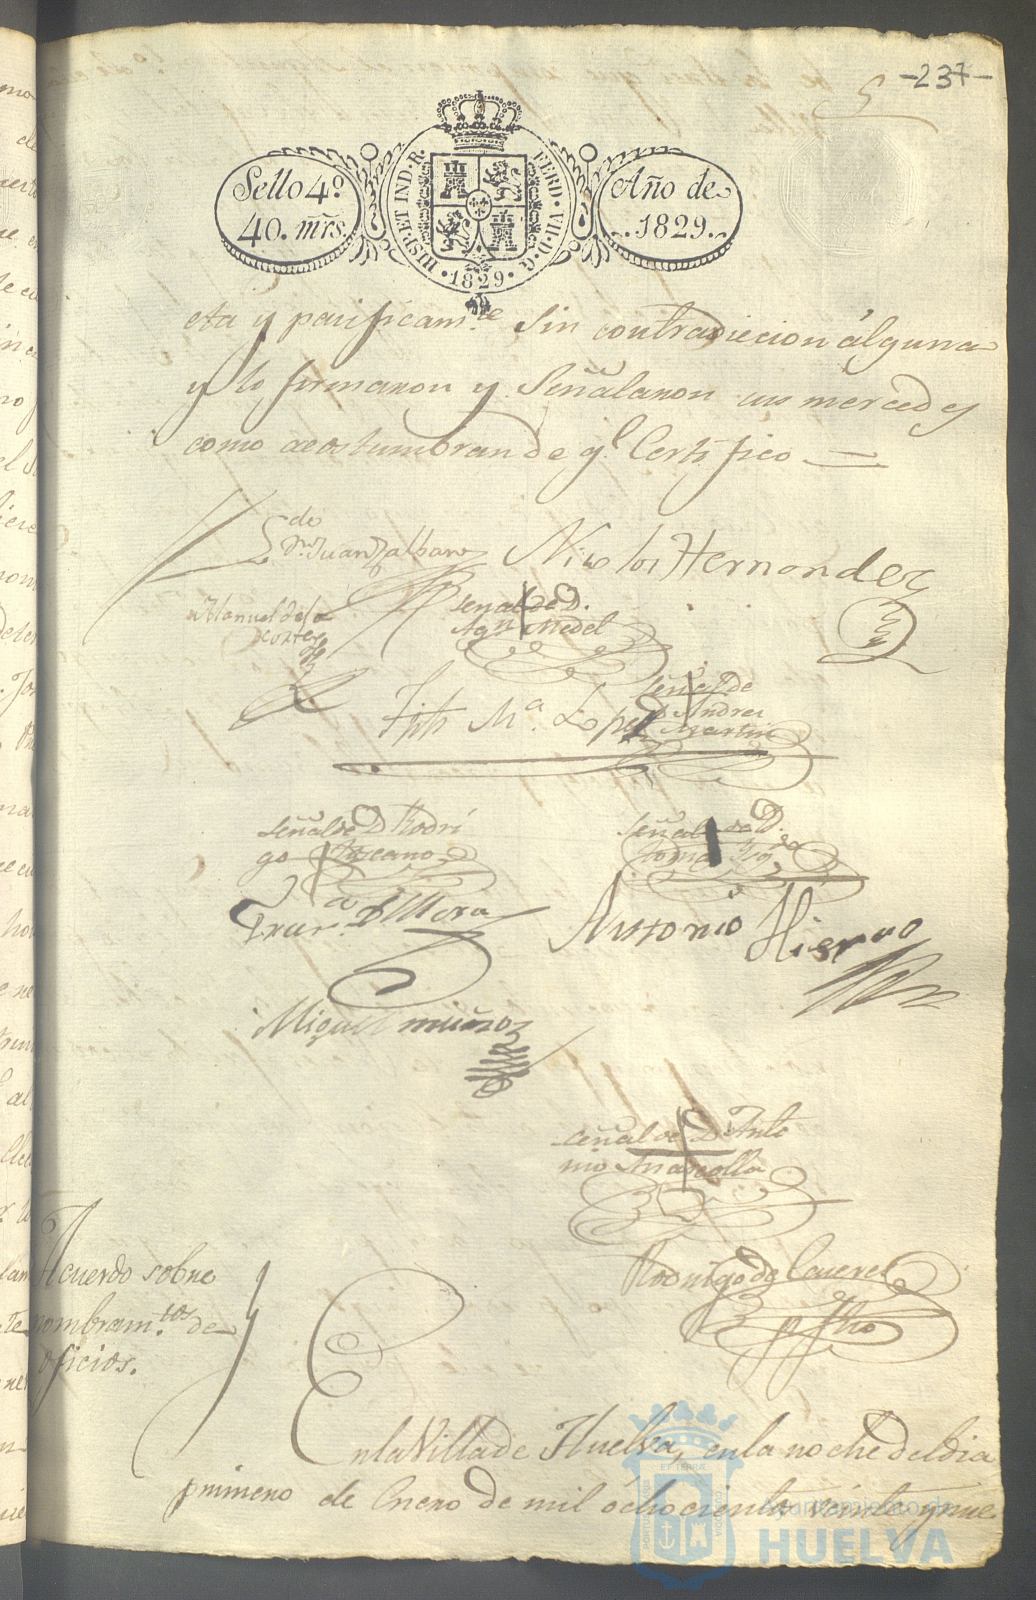 -237-
Sello 4.º
40. mrs.
HISP. ET IND. R. FERD. VII. D. G.
· 1829 ·
Año de
1829.
eta y pacificam.te sin contradiccion álguna
y lo firmaron y Señalaron sus mercedes
como acostumbran de q.e Certifico =
Ldo
Dn. Juan
Nicolas Hernandez
Manuel de la
Corte
Señal de D.
Agn. Medel
Señal de
D. Andres
Martin
Jph Mª. Lopez
Señal de D Rodri
go Toscano
Señal de D.
Franco. D Mora
Antonio Hierro
Miguel muñoz
Señal de D. Anto
nio Anacolla
Rodrigo de
Acuerdo sobre
nombram.tos de
oficios.
En la Villa de Huelva, en la noche del dia
primero de Enero de mil óchocientos veinte y nue
Ayuntamiento de
HUELVA